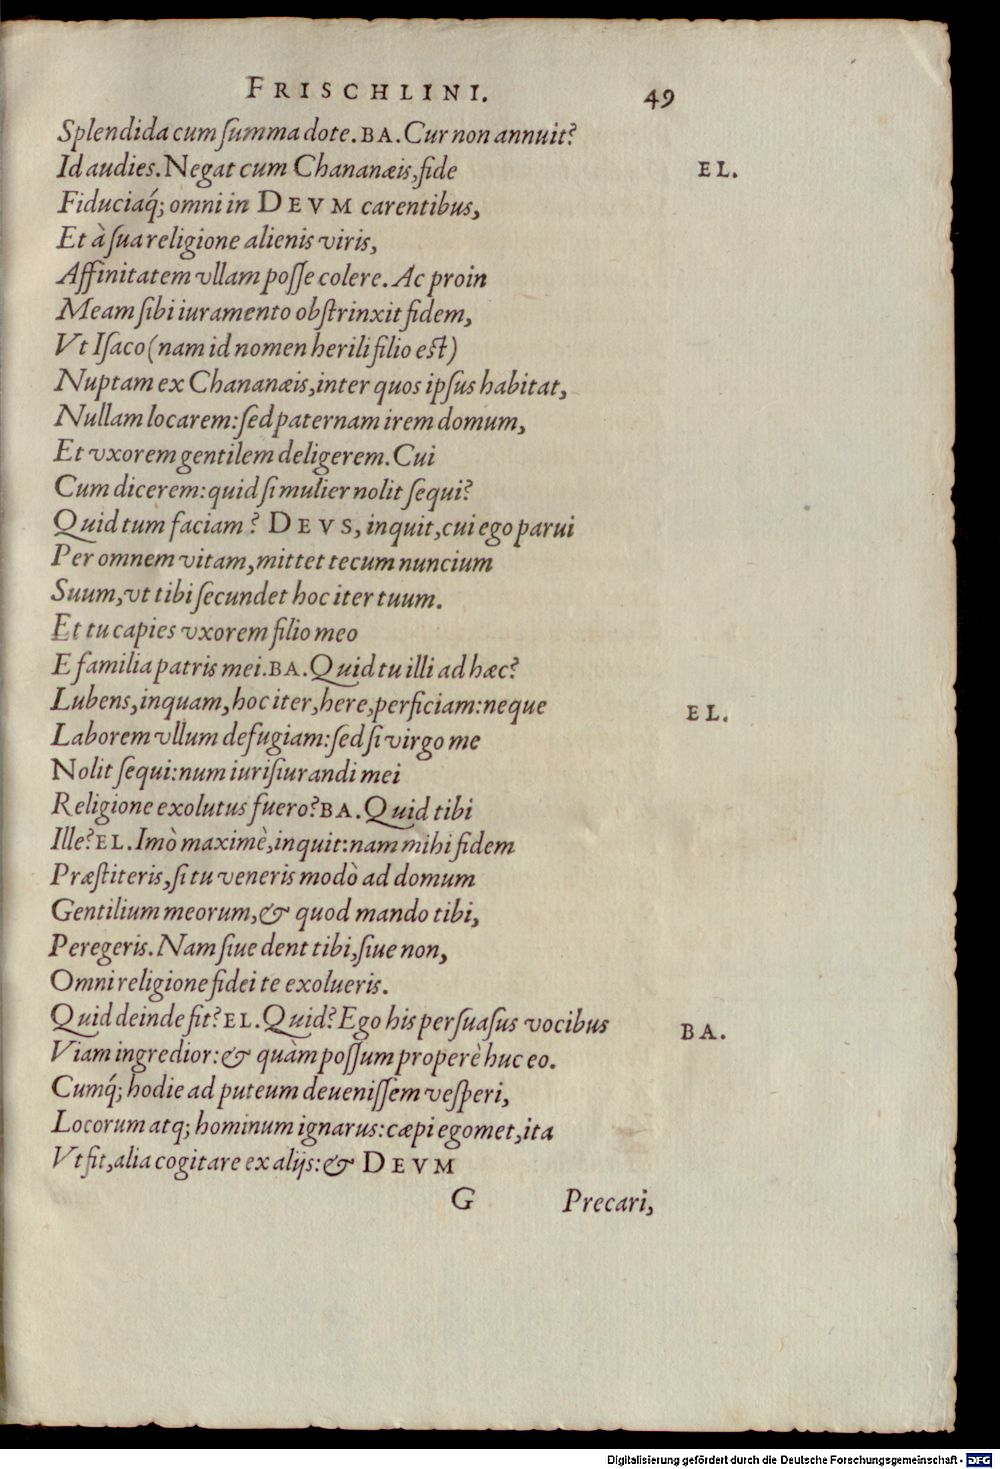 FRISCHLINI. 49
Splendida cum ſumma dote. BA. Cur non annuit?
Id audies. Negat cum Chananæis, fide EL.
Fiduciaq́; omni in DEVM carentibus,
Et à ſua religione alienis viris,
Affinitatem vllam poſſe colere. Ac proin
Meam ſibi iuramento obſtrinxit fidem,
Vt Iſaco (nam id nomen herili filio eſt)
Nuptam ex Chananæis, inter quos ipſus habitat,
Nullam locarem: ſed paternam irem domum,
Et vxorem gentilem deligerem. Cui
Cum dicerem: quid ſi mulier nolit ſequi?
Quid tum faciam? DEVS, inquit, cui ego parui
Per omnem vitam, mittet tecum nuncium
Suum, vt tibi ſecundet hoc iter tuum.
Et tu capies vxorem filio meo
E familia patris mei. BA. Quid tu illi ad hæc?
Lubens, inquam, hoc iter, here, perficiam: neque EL.
Laborem vllum defugiam: ſed ſi virgo me
Nolit ſequi: num iuriſiurandi mei
Religione exolutus fuero? BA. Quid tibi
Ille? EL. Imò maximè, inquit: nam mihi fidem
Præſtiteris, ſi tu veneris modò ad domum
Gentilium meorum, & quod mando tibi,
Peregeris. Nam ſiue dent tibi, ſiue non,
Omni religione fidei te exolueris.
Quid deinde fit? EL. Quid? Ego his perſuaſus vocibus BA.
Viam ingredior: & quàm poſſum properè huc eo.
Cumq́; hodie ad puteum deueniſſem veſperi,
Locorum atq; hominum ignarus: cæpi egomet, ita
Vt fit, alia cogitare ex alijs: & DEVM
G Precari,
Digitalisierung gefördert durch die Deutsche Forschungsgemeinschaft - DFG